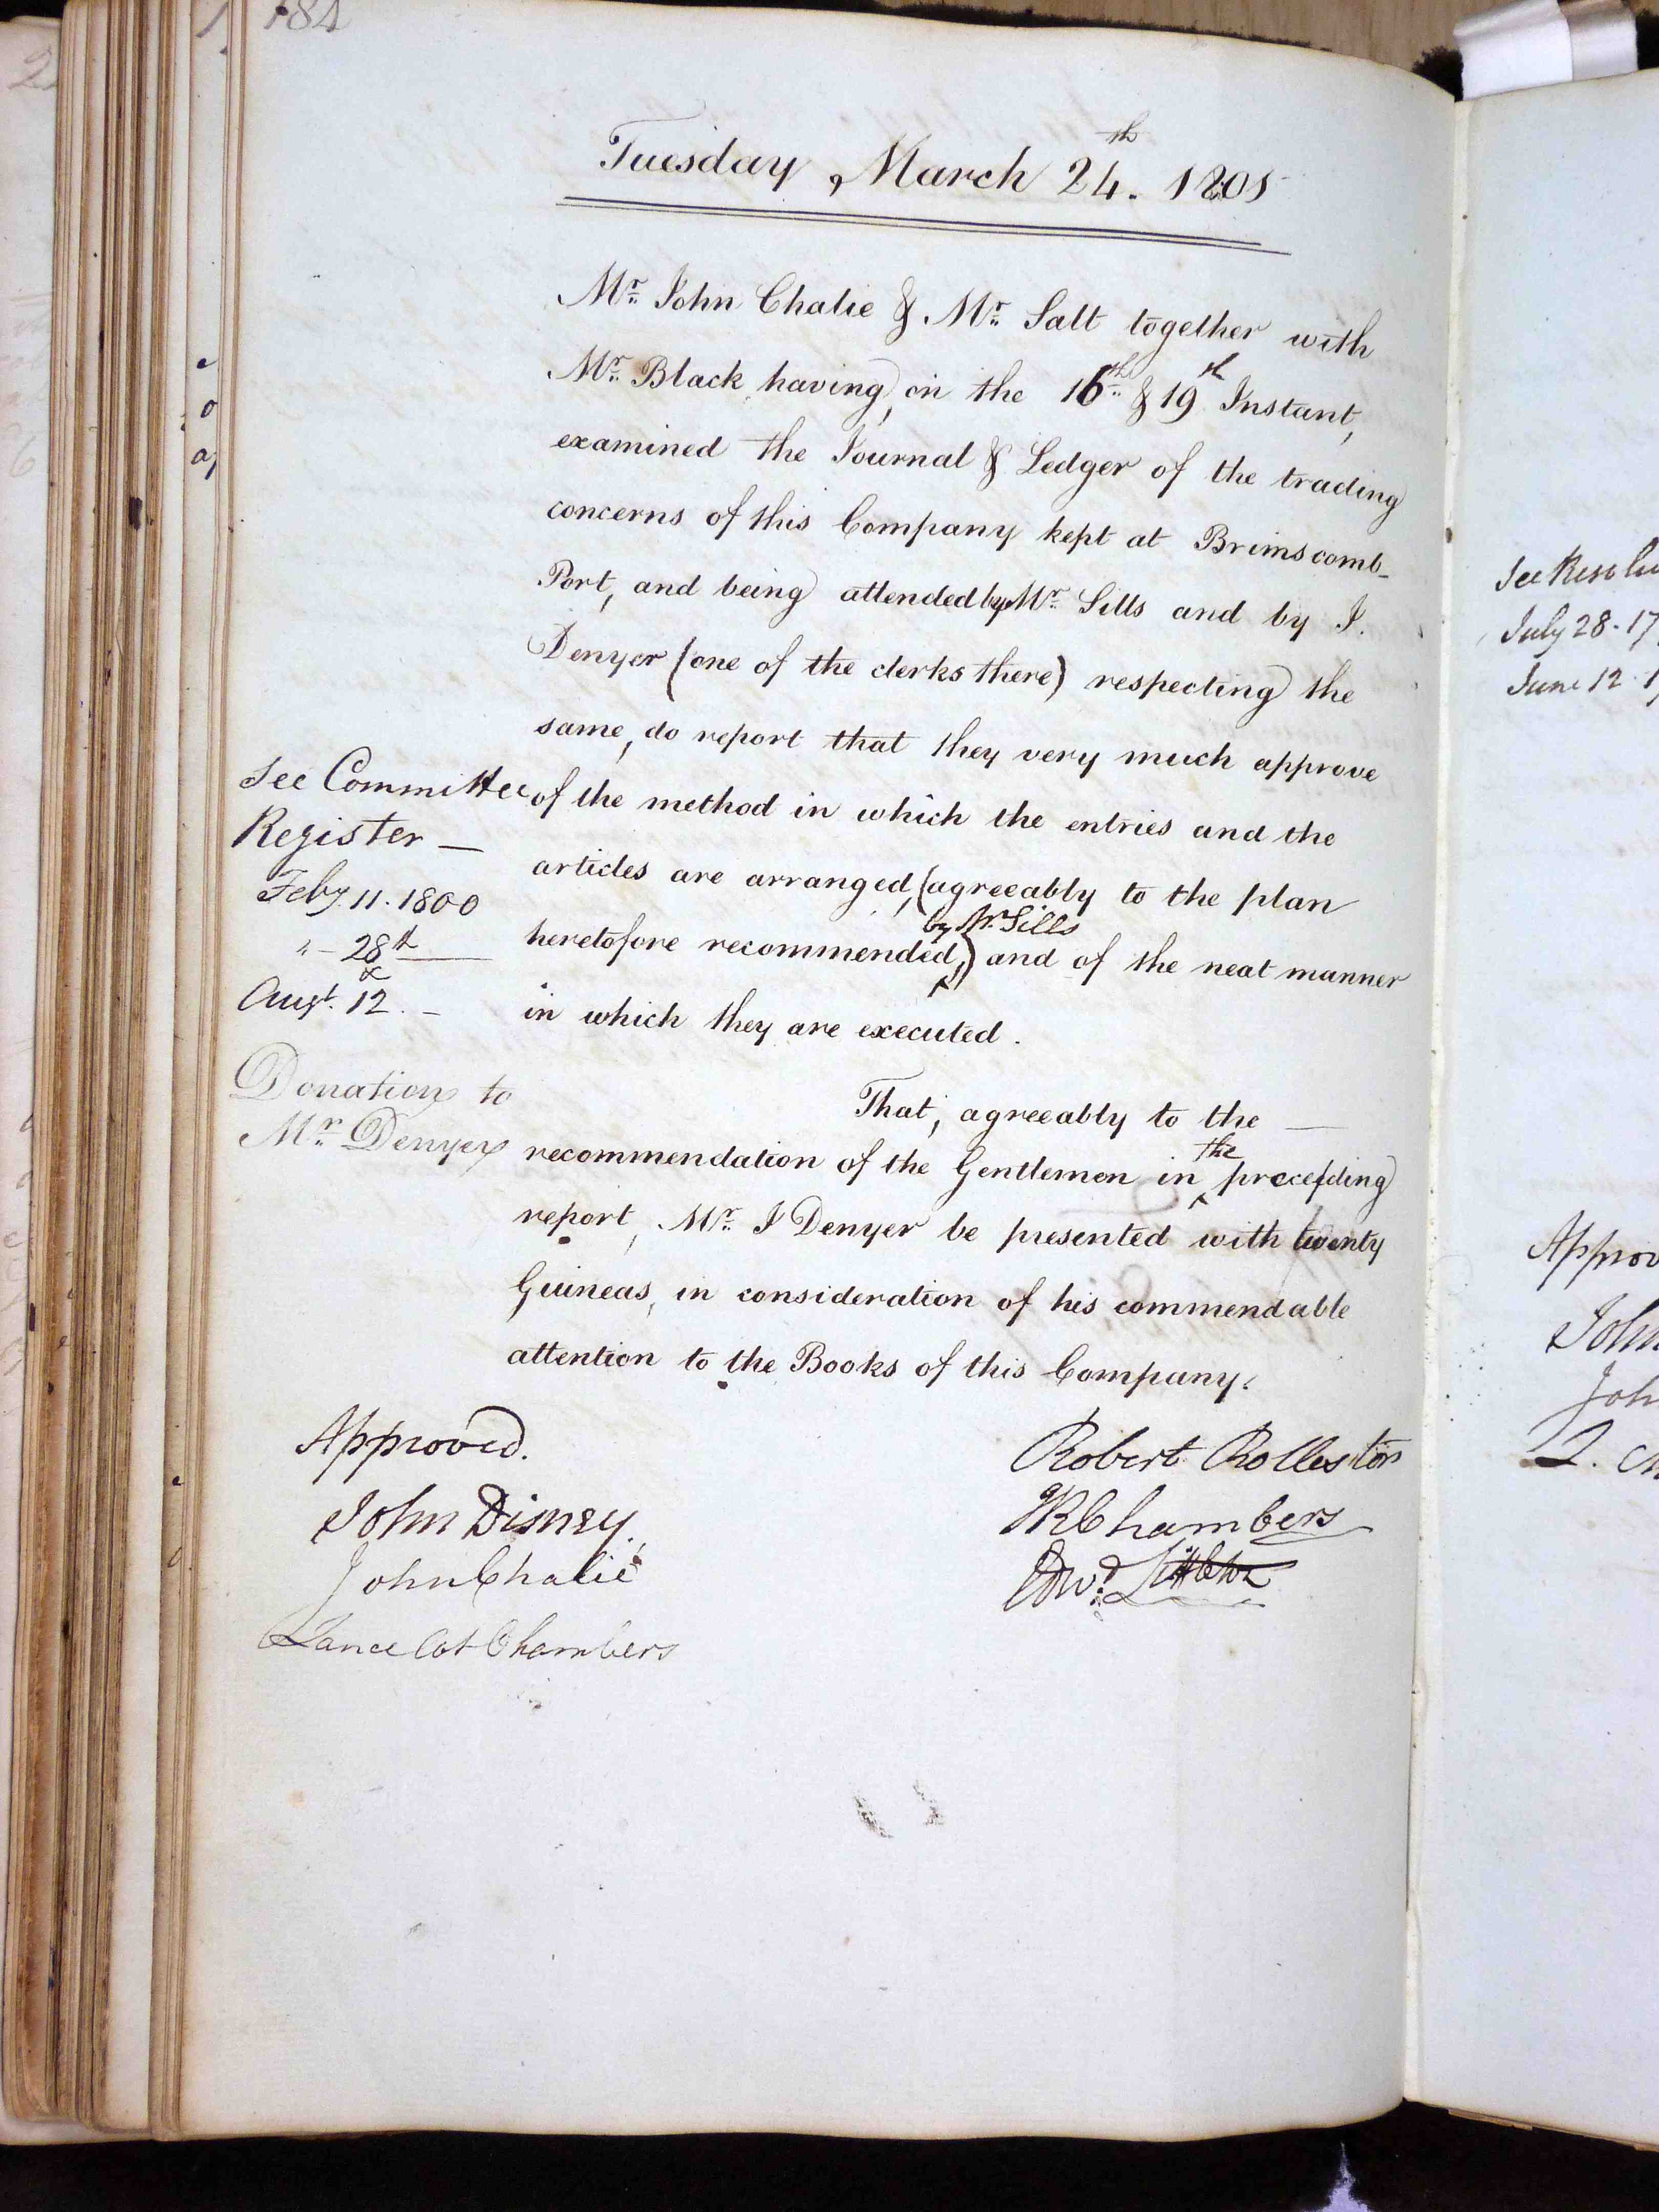 184
Tuesday, March 24th. 1801
Mr. John Chalie & Mr. Salt together with
Mr. Black having, on the 16th & 19th Instant,
examined the Journal & Ledger of the trading
concerns of this Company kept at Brimscomb-
Port, and being attended by Mr. Sills and by J.
Denyer (one of the clerks there) respecting the
same, do report that they very much approve
of the method in which the entries and the
articles are arranged, (agreeably to the plan
heretofore recommended, by Mr. Sills) and of the neat manner
in which they are executed.
See Committee
Register —
Feby. 11. 1800
" - 28th
&
Augt. 12. -
Donation to
Mr. Denyer
That, agreeably to the —
recommendation of the Gentlemen in the preceeding
report, Mr. J Denyer be presented with twenty
Guineas, in consideration of his commendable
attention to the Books of this Company.
Approved.
John Disney.
John Chalie
Lancelot Chambers
Robert Rolleston
Chambers
Edwd.
July 28. 17
June 12. 1
Approv
John
Joh